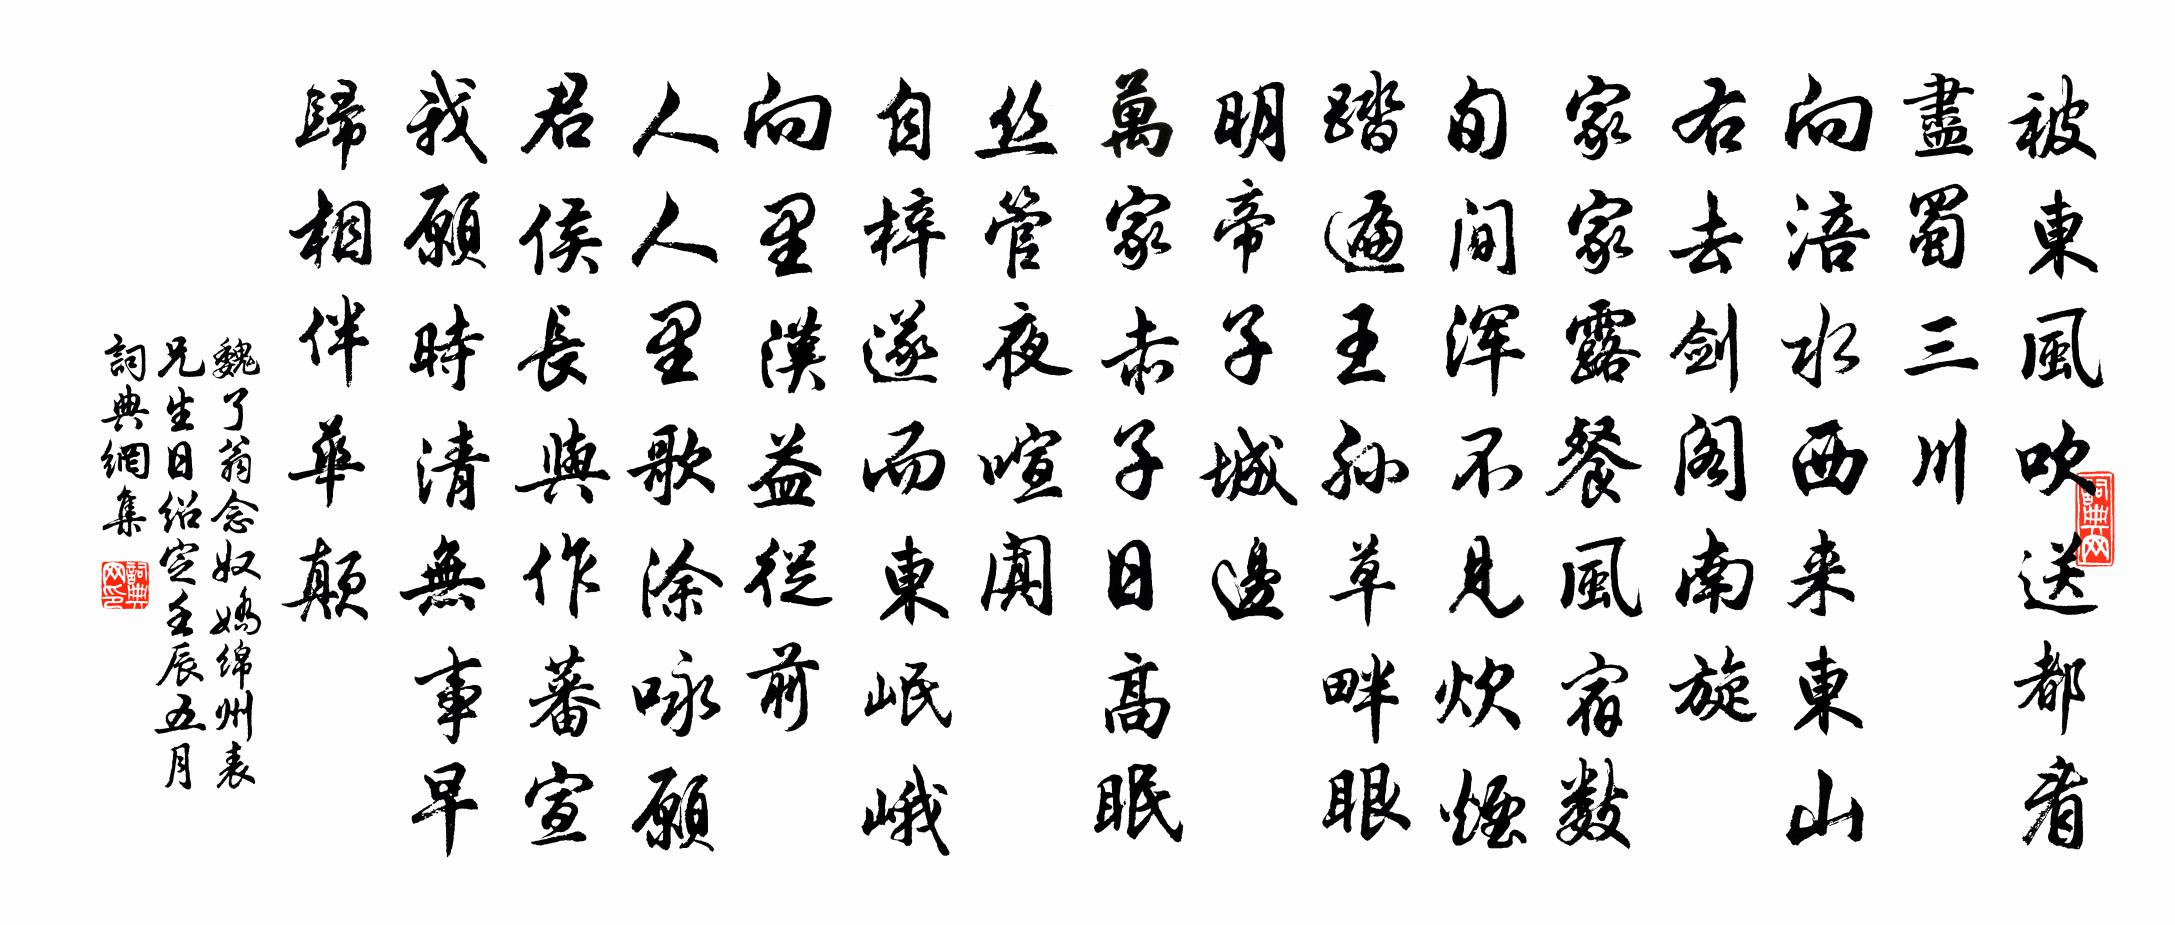 被東風吹送都看
盡蜀三川
向涪水西来東山
右去剑阁南旋
家家露餐風宿数
旬间浑不見炊煙
踏遍王孙草畔眼
明帝子城邊
萬家赤子日高眠
丝管夜喧阗
自梓遂而東岷峨
向里漢益從前
人人里歌涂咏願
君侯長與作蕃宣
我願時清無事早
歸相伴華颠
魏了翁念奴嬌绵州表
兄生日绍定壬辰五月
詞典網集
詞典网
詞典网印